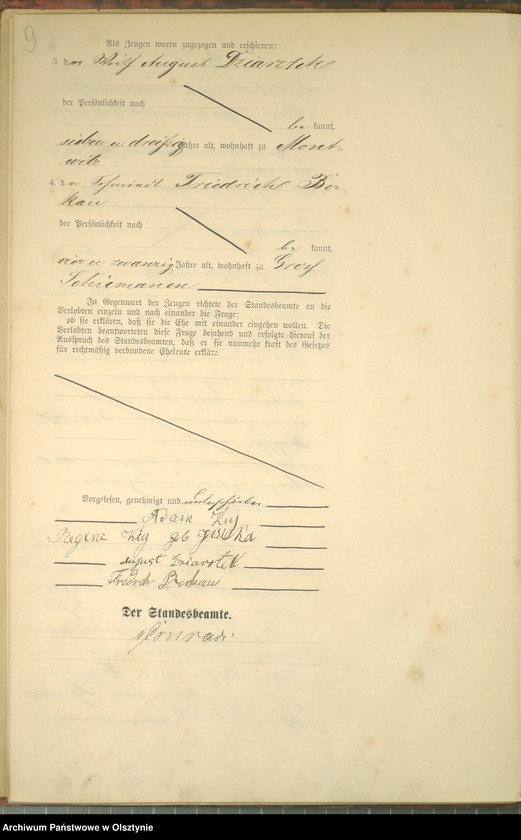 9
Als Zeugen waren zugezogen und erschienen:
3. der Wirth August Dziarstek
der Persönlichkeit nach
be kannt,
sieben u. dreißig Jahre alt, wohnhaft zu
witz
4. der Friedrich Ber-
kau
der Persönlichkeit nach
be kannt,
vier u zwanzig Jahre alt, wohnhaft zu Groß
Schiemanen
In Gegenwart der Zeugen richtete der Standesbeamte an die
Verlobten einzeln und nach einander die Frage:
ob sie erklären, daß sie die Ehe mit einander eingehen wollen. Die
Verlobten beantworteten diese Frage bejahend und erfolgte hierauf der
Ausspruch des Standesbeamten, daß er sie nunmehr kraft des Gesetzes
für rechtmäßig verbundene Eheleute erkläre.
Vorgelesen, genehmigt und unterschrieben
Adam
Regine gb
August Dziarstek
Berkau
Der Standesbeamte.
Conradi
Archiwum Państwowe w Olsztynie